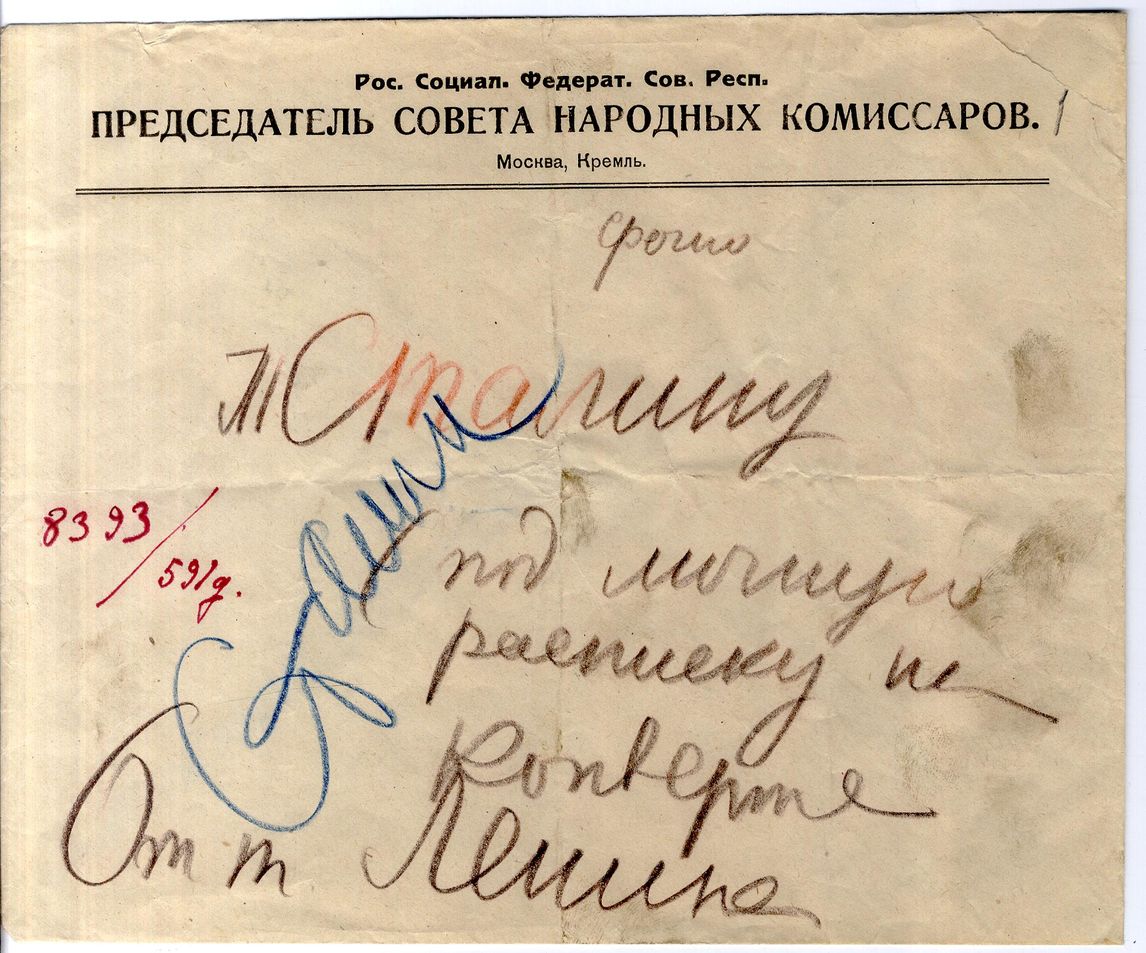 Рос. Социал. Федерат. Сов. Респ.
ПРЕДСЕДАТЕЛЬ СОВЕТА НАРОДНЫХ КОМИССАРОВ.
1
Москва, Кремль.
фото
т Сталину
8393/591д.
Сталин
под личную
расписку на
конверте
От т Ленина